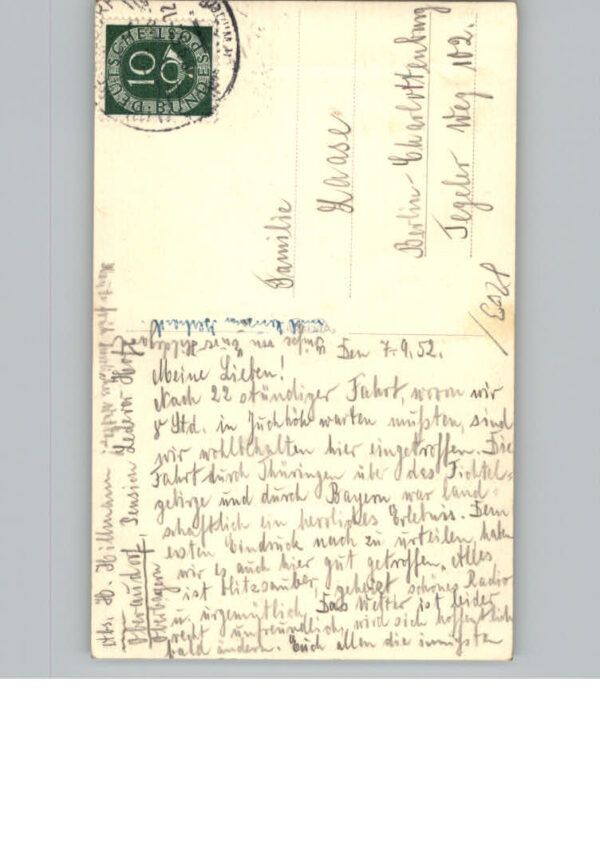 Den 7.9.52.
Meine Lieben!
Nach 22 stündiger Fahrt, wovon wir
8 Std. in Juchhöh warten mußten, sind
wir wohlbehalten hier eingetroffen. Die
Fahrt durch Thüringen über das Fichtel-
gebirge und durch Bayern war land-
schaftlich ein herrliches Erlebnis. Dem
ersten Eindruck nach zu urteilen, haben
wir es auch hier gut getroffen. Alles
ist blitzsauber, geheizt schönes Radio
u. urgemütlich. Das Wetter ist leider
recht unfreundlich, wird sich hoffentlich
bald ändern. Euch allen die innigsten
Abs. H. Hillmann
Oberaudorf, Pension Lederer Hof
Oberbayern
Familie
Haase
Berlin-Charlottenburg
Tegeler Weg 102.
DEUTSCHE BUNDESPOST
10